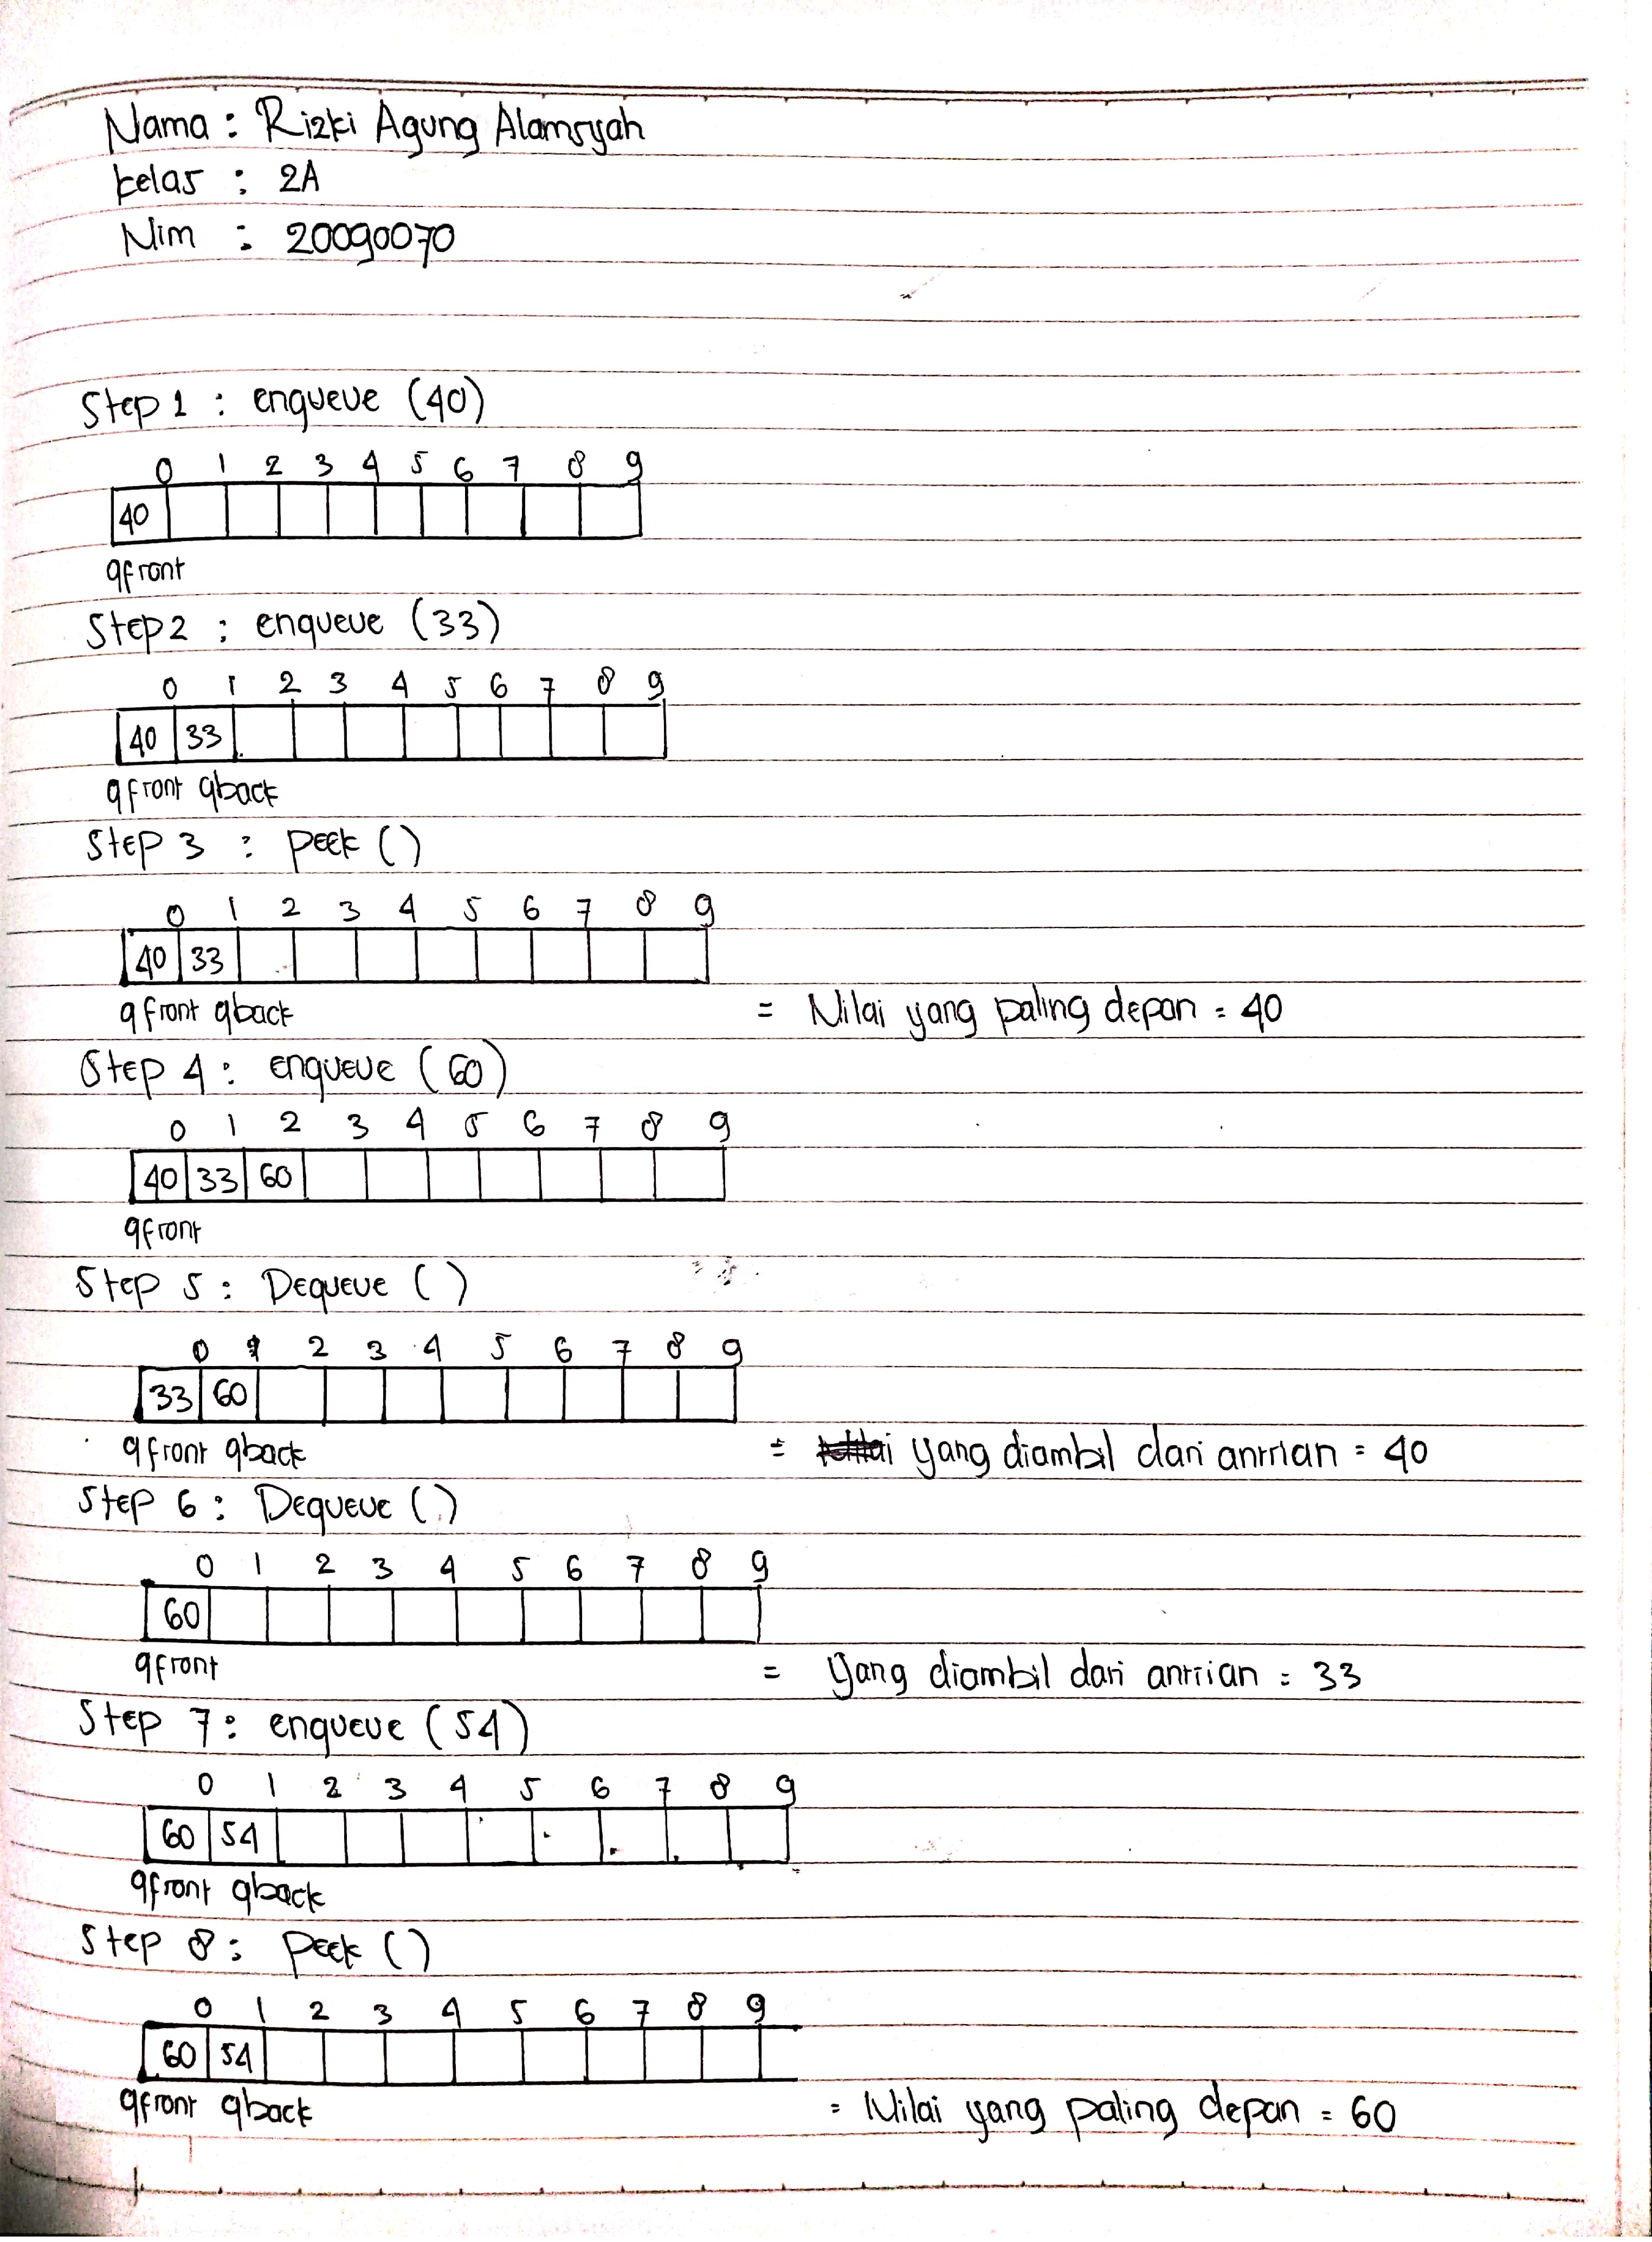 Nama : Rizki Agung Alamsyah
kelas : 2A
Nim : 20090070
Step 1 : enqueue (40)
0 1 2 3 4 5 6 7 8 9
40
qfront
Step 2 : enqueue (33)
0 1 2 3 4 5 6 7 8 9
40 33
qfront qback
Step 3 : peek ()
0 1 2 3 4 5 6 7 8 9
40 33
qfront qback = Nilai yang paling depan = 40
Step 4 : enqueue (60)
0 1 2 3 4 5 6 7 8 9
40 33 60
qfront
Step 5 : Dequeue ()
0 1 2 3 4 5 6 7 8 9
33 60
qfront qback = yang diambil dari antrian = 40
Step 6 : Dequeue ()
0 1 2 3 4 5 6 7 8 9
60
qfront = yang diambil dari antrian = 33
Step 7 : enqueue (54)
0 1 2 3 4 5 6 7 8 9
60 54
qfront qback
Step 8 : Peek ()
0 1 2 3 4 5 6 7 8 9
60 54
qfront qback = Nilai yang paling depan = 60